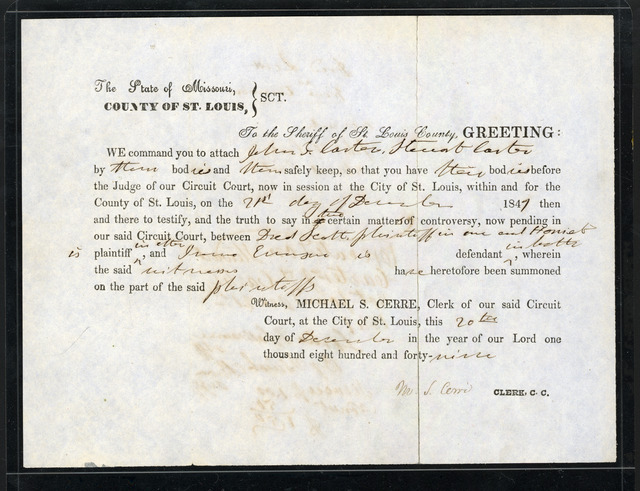 The State of Missouri,
COUNTY OF ST. LOUIS, } SCT.
To the Sheriff of St. Louis County, GREETING:
WE command you to attach John Carter, Stewart Carter
by their bodies and them safely keep, so that you have their bodies before
the Judge of our Circuit Court, now in session at the City of St. Louis, within and for the
County of St. Louis, on the 21st day of December 1849 then
and there to testify, and the truth to say in two certain matters of controversy, now pending in
our said Circuit Court, between Dred Scott plaintiff in one and Harriet
is plaintiff in other, and Irene Emerson is defendant in both, wherein
the said witnesses have heretofore been summoned
on the part of the said plaintiffs
Witness, MICHAEL S. CERRE, Clerk of our said Circuit
Court, at the City of St. Louis, this 20th
day of December in the year of our Lord one
thousand eight hundred and forty-nine
M. S. Cerre CLERK, C. C.